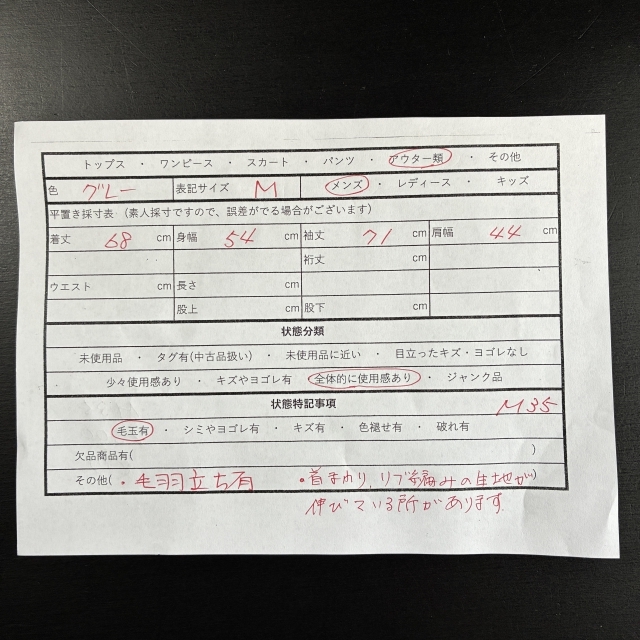 トップス ・ ワンピース ・ スカート ・ パンツ ・ アウター類 ・ その他
色 グレー 表記サイズ M メンズ ・ レディース ・ キッズ
平置き採寸表 (素人採寸ですので、誤差がでる場合がございます)
着丈 68 cm 身幅 54 cm 袖丈 71 cm 肩幅 44 cm
裄丈 cm
ウエスト cm 長さ cm
股上 cm 股下 cm
状態分類
未使用品 ・ タグ有(中古品扱い) ・ 未使用品に近い ・ 目立ったキズ・ヨゴレなし
少々使用感あり ・ キズやヨゴレ有 ・ 全体的に使用感あり ・ ジャンク品
状態特記事項
M35
毛玉有 ・ シミやヨゴレ有 ・ キズ有 ・ 色褪せ有 ・ 破れ有
欠品商品有( )
その他( ・毛羽立ち有 ・首まわり、リブ編みの生地が)
伸びている所があります。